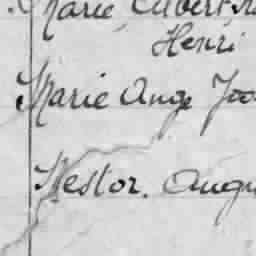 Marie, Albert,
Henri
Marie Ange
Nestor. Augu